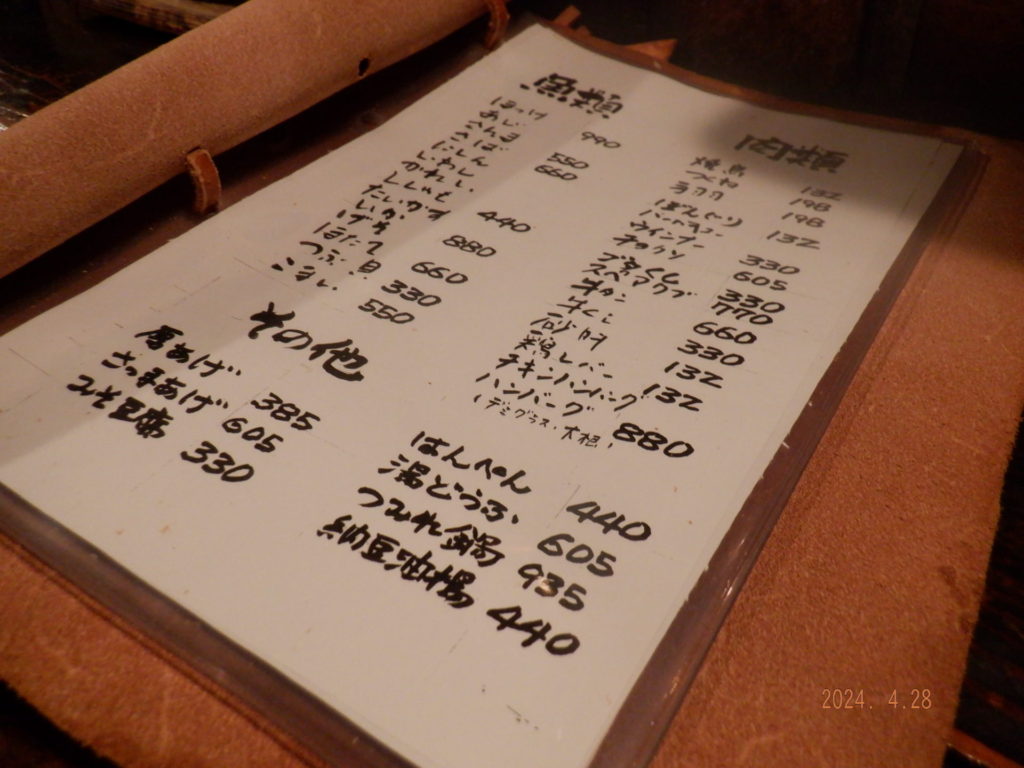 魚類
ほっけ 990
あじ
さんま 550
さば 660
にしん
いわし
かれい 440
ししゃも
たいかま 880
いか
げそ 660
ほたて 330
つぶ貝 550
こまい
肉類
焼鳥 132
つくね 198
198
ぼんじり 132
ウインナー 330
605
豚串くし 330
スペアリブ 770
牛タン 660
牛くし 330
砂肝 132
鶏レバー 132
チキンハンバーグ
ハンバーグ 880
(デミグラス・大根)
その他
厚あげ 385
さつまあげ 605
みそ豆腐 330
はんぺん 440
湯どうふ 605
つみれ鍋 935
納豆油揚 440
2024. 4.28